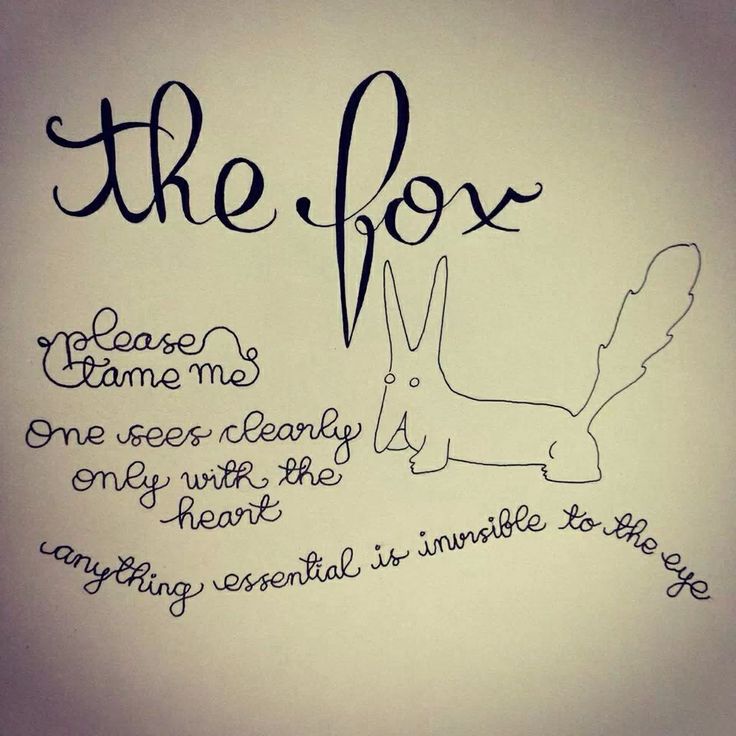 the fox
please
tame me
one sees clearly
only with the
heart
anything essential is invisible to the eye